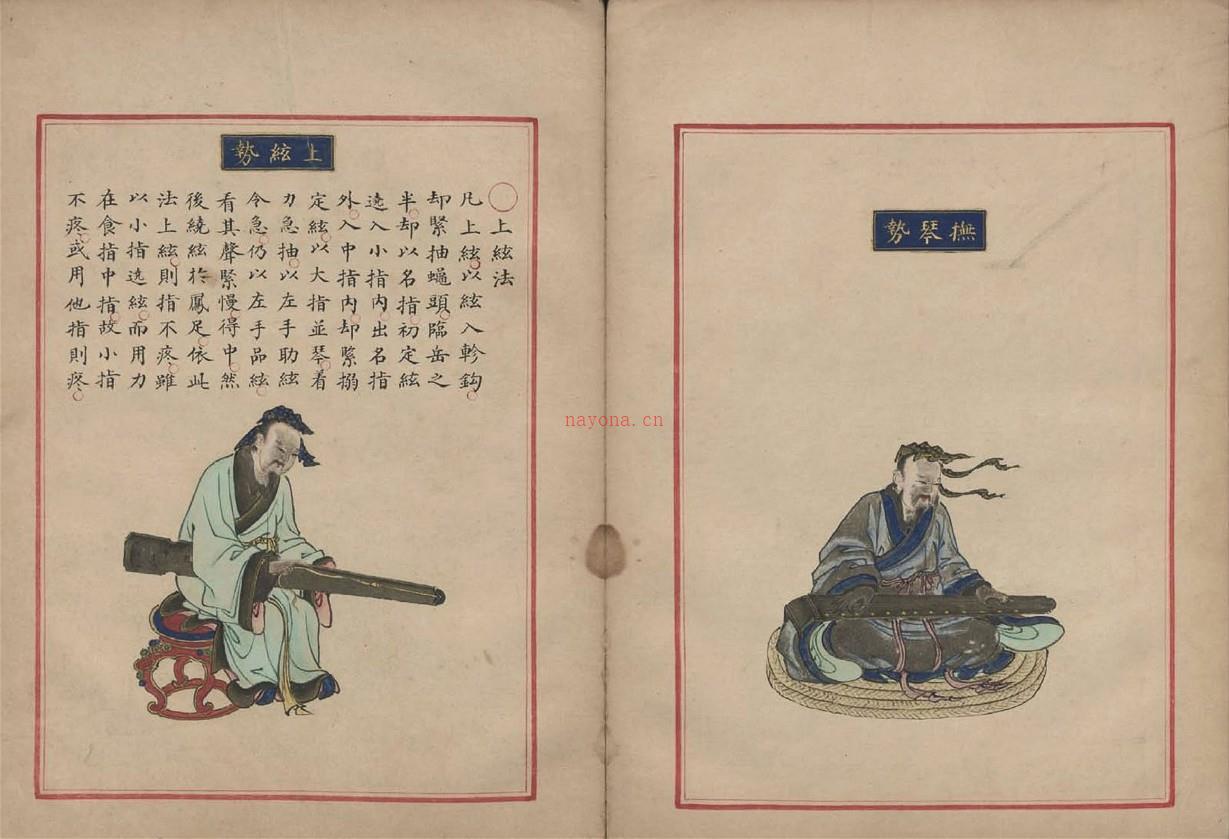 撫琴勢
上絃勢
○上絃法
凡上絃以絃入軫鈎
却緊抽蠅頭臨岳之
半却以名指初定絃
遶入小指内出名指
外入中指内却緊搦
定絃以大指並琴着
力急抽以左手助絃
令急仍以左手品絃
看其聲緊慢得中然
後繞絃於鳳足依此
法上絃則指不疼雖
以小指遶絃而用力
在食指中指故小指
不疼或用他指則疼
nayona.cn